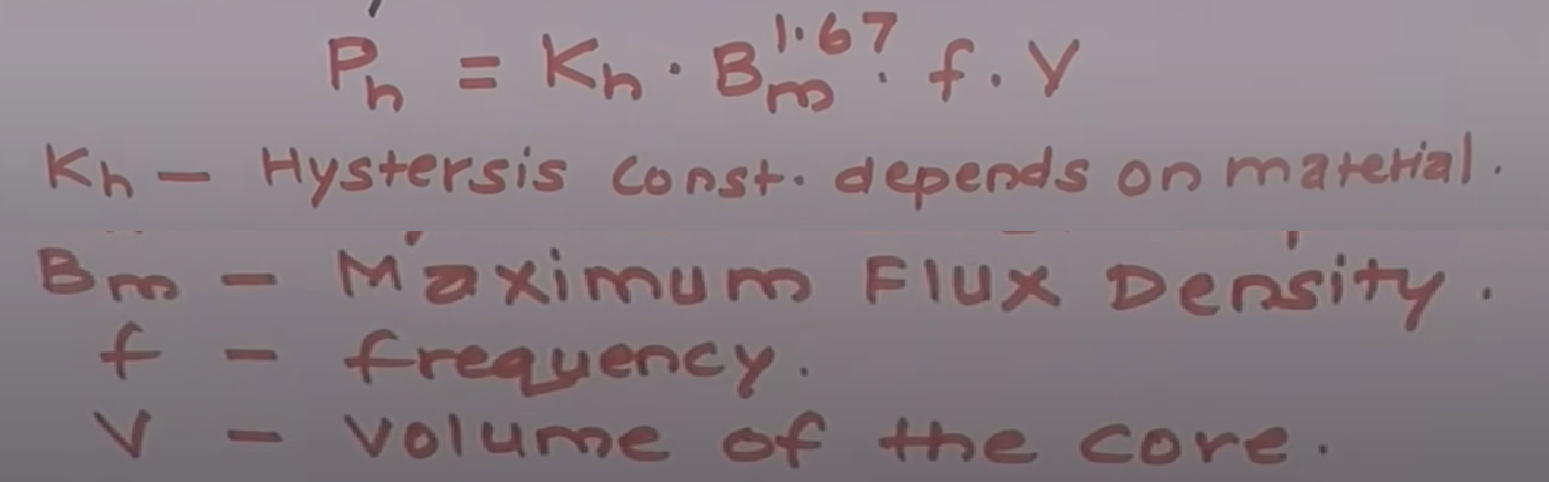 Ph = Kh · Bm^1.67 · f · V
Kh – Hystersis const. depends on material.
Bm – Maximum Flux Density.
f – frequency.
V – Volume of the core.